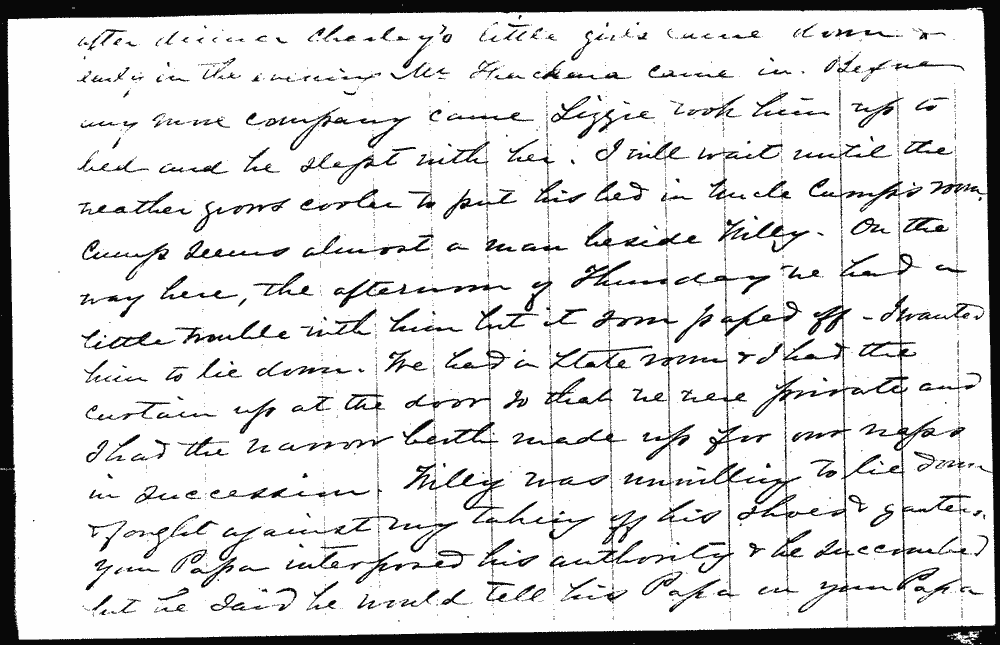 after dinner Charley's little girls came down &
early in the evening Mr came in. Before
any more company came Lizzie took him up to
bed and he slept with her. I will wait until the
weather grows cooler to put his bed in Uncle Cump's room.
Cump seems almost a man beside Willy. On the
way here, the afternoon of Thursday we had a
little trouble with him but it soon passed off - I wanted
him to lie down. We had a State room & I had the
curtain up at the door so that we were private and
I had the narrow berth made up for our naps
in succession. Willy was unwilling to lie down
& fought against my taking off his shoes & gaiters.
your Papa interposed his authority & he succumbed
but he said he would tell his Papa on your Papa